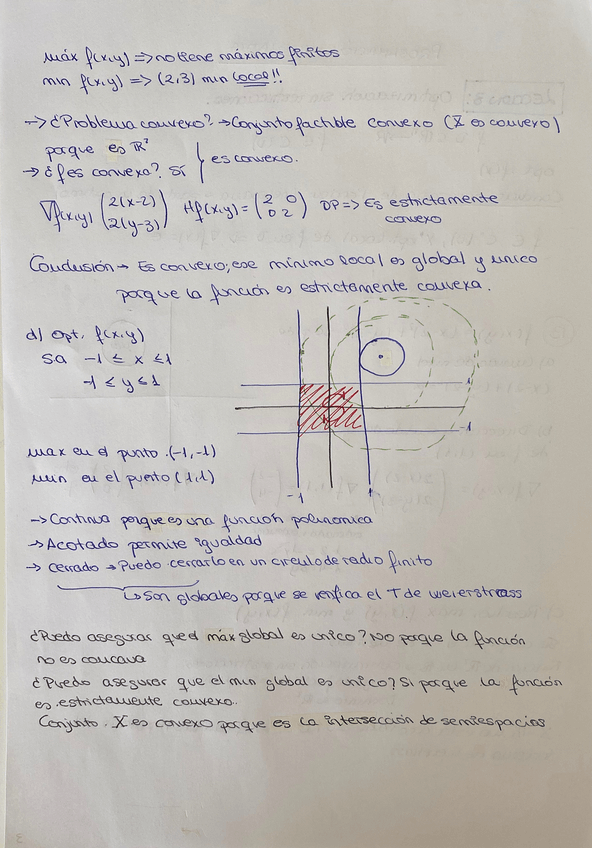 máx f(x,y) => no tiene máximos finitos
min f(x,y) => (2,3) min local!!
-> ¿Problema convexo? -> Conjunto factible convexo (X es convexo)
porque es ℝ²
-> ¿f es convexa? Sí } es convexo.
∇f(x,y) (2(x-2) 2(y-3)) Hf(x,y) = (2 0 0 2) DP => Es estrictamente
convexo
Conclusión -> Es convexo, ese mínimo local es global y unico
porque la función es estrictamente convexa.
d) Opt. f(x,y)
sa -1 ≤ x ≤ 1
-1 ≤ y ≤ 1
-1
max en el punto (-1,-1)
min en el punto (1,1)
-1 1
-> Continua porque es una función polinomica
-> Acotado permite igualdad
-> Cerrado -> Puedo cerrarlo en un circulo de radio finito
↳ Son globales porque se verifica el T de weierstrass
¿Puedo asegurar que el máx global es unico? No porque la función
no es concava
¿Puedo asegurar que el min global es unico? Si porque la función
es estrictamente convexo.
Conjunto X es convexo porque es la intersección de semiespacios